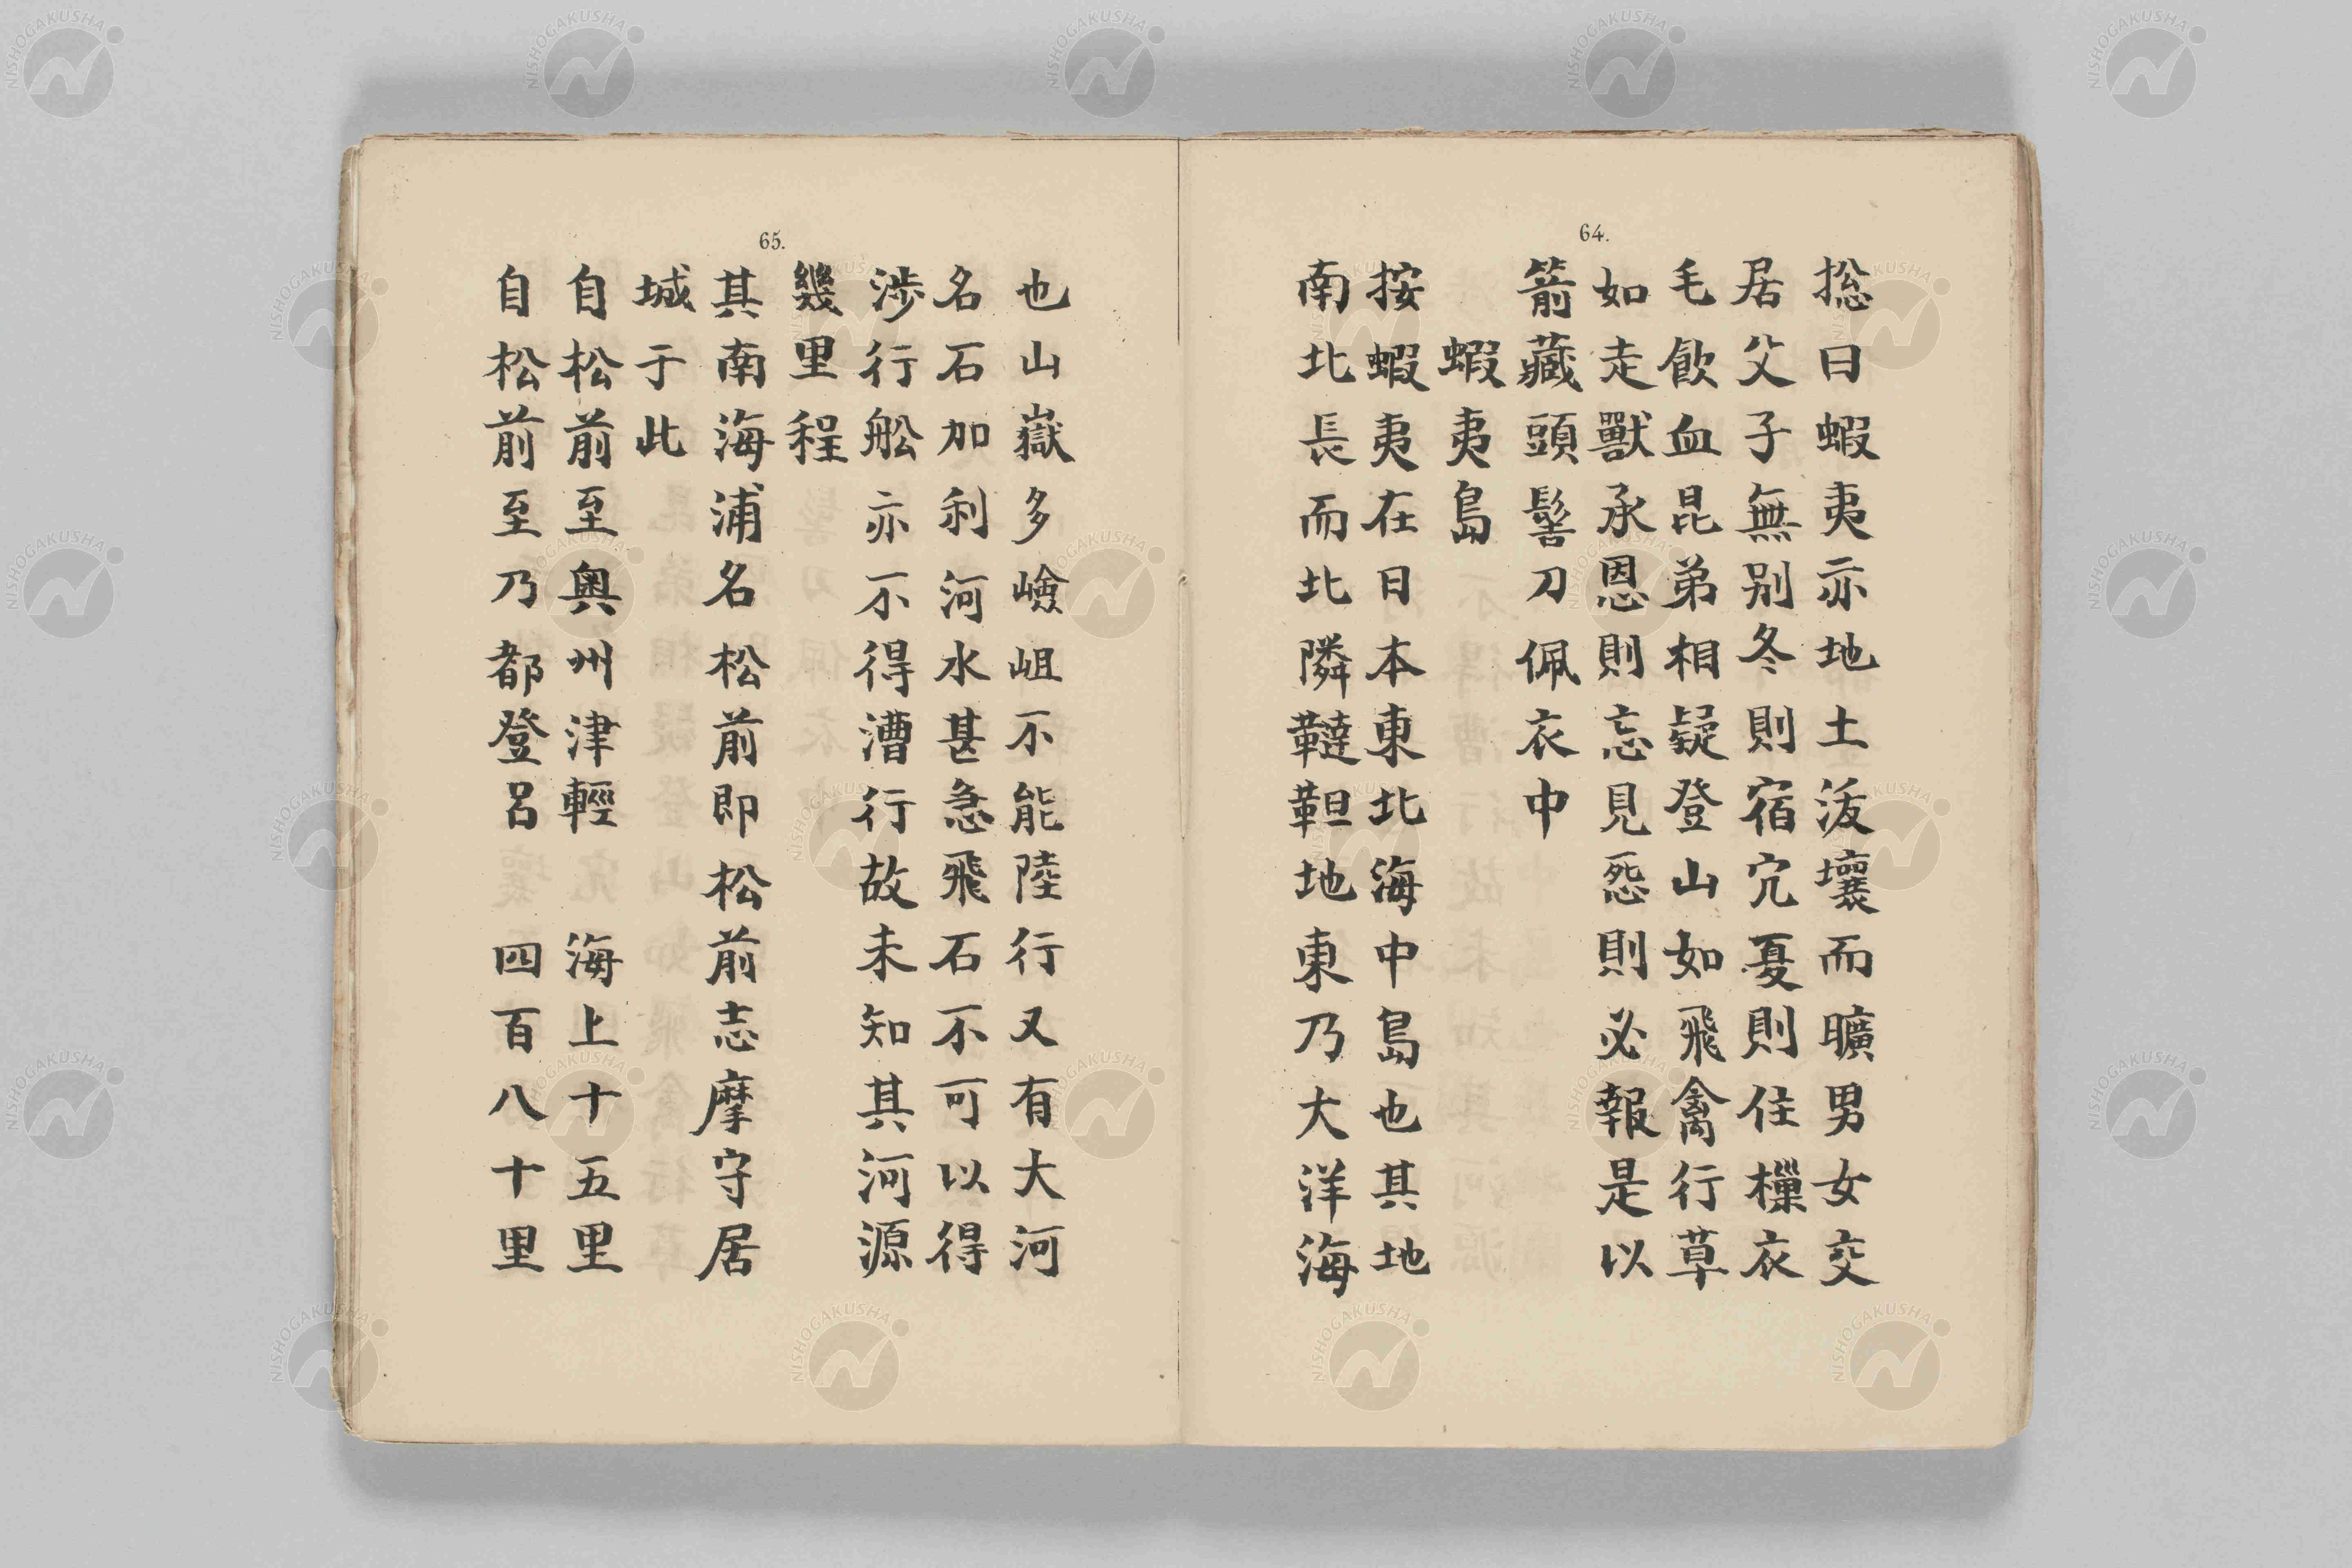 64.
捴曰蝦夷亦地土沃壤而曠男女交
居父子無別冬則宿穴夏則住樔衣
毛飲血昆弟相疑登山如飛禽行草
如走獸承恩則忘見怨則必報是以
箭藏頭髻刀佩衣中
蝦夷島
按蝦夷在日本東北海中島也其地
南北長而北隣韃靼地東乃大洋海
65.
也山嶽多嶮岨不能陸行又有大河
名石加利河水甚急飛石不可以得
渉行舩亦不得漕行故未知其河源
幾里程
其南海浦名松前即松前志摩守居
城于此
自松前至奧州津輕 海上十五里
自松前至乃都登呂 四百八十里